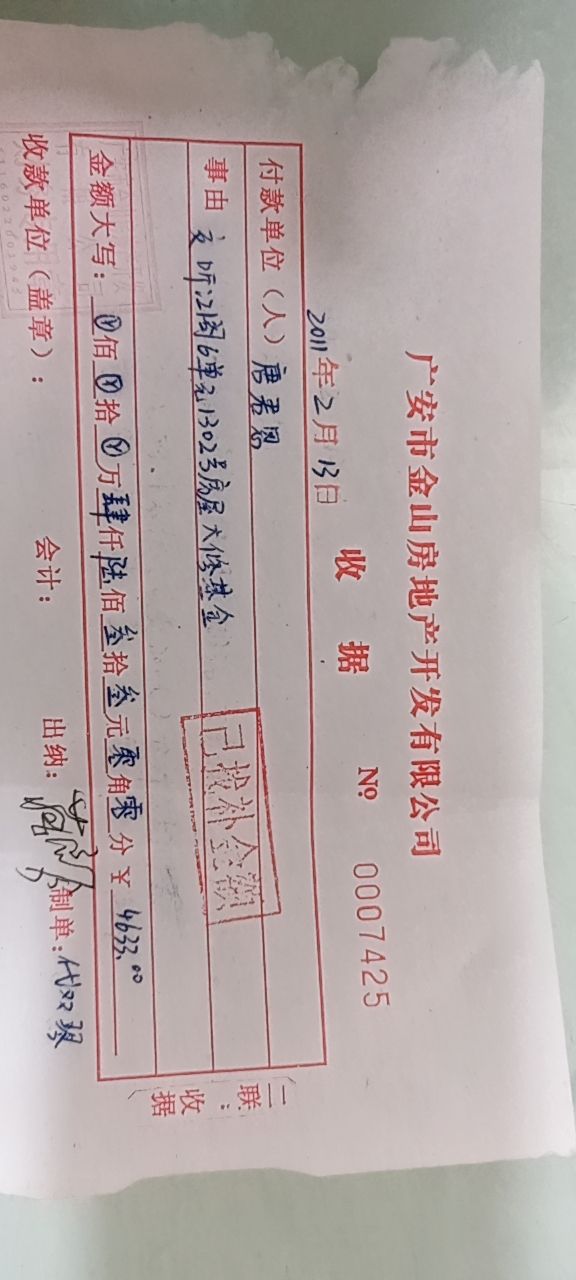 广安市金山房地产开发有限公司
收 据 № 0007425
2011年2月13日
付款单位（人） 唐君恩
事由 交昕江阁6单元1302号房屋大修基金
已找补金额
金额大写：⊗佰⊗拾⊗万肆仟陆佰叁拾叁元零角零分 ¥ 4633.00
收款单位（盖章）： 会计： 出纳： 制单：
二联：收据